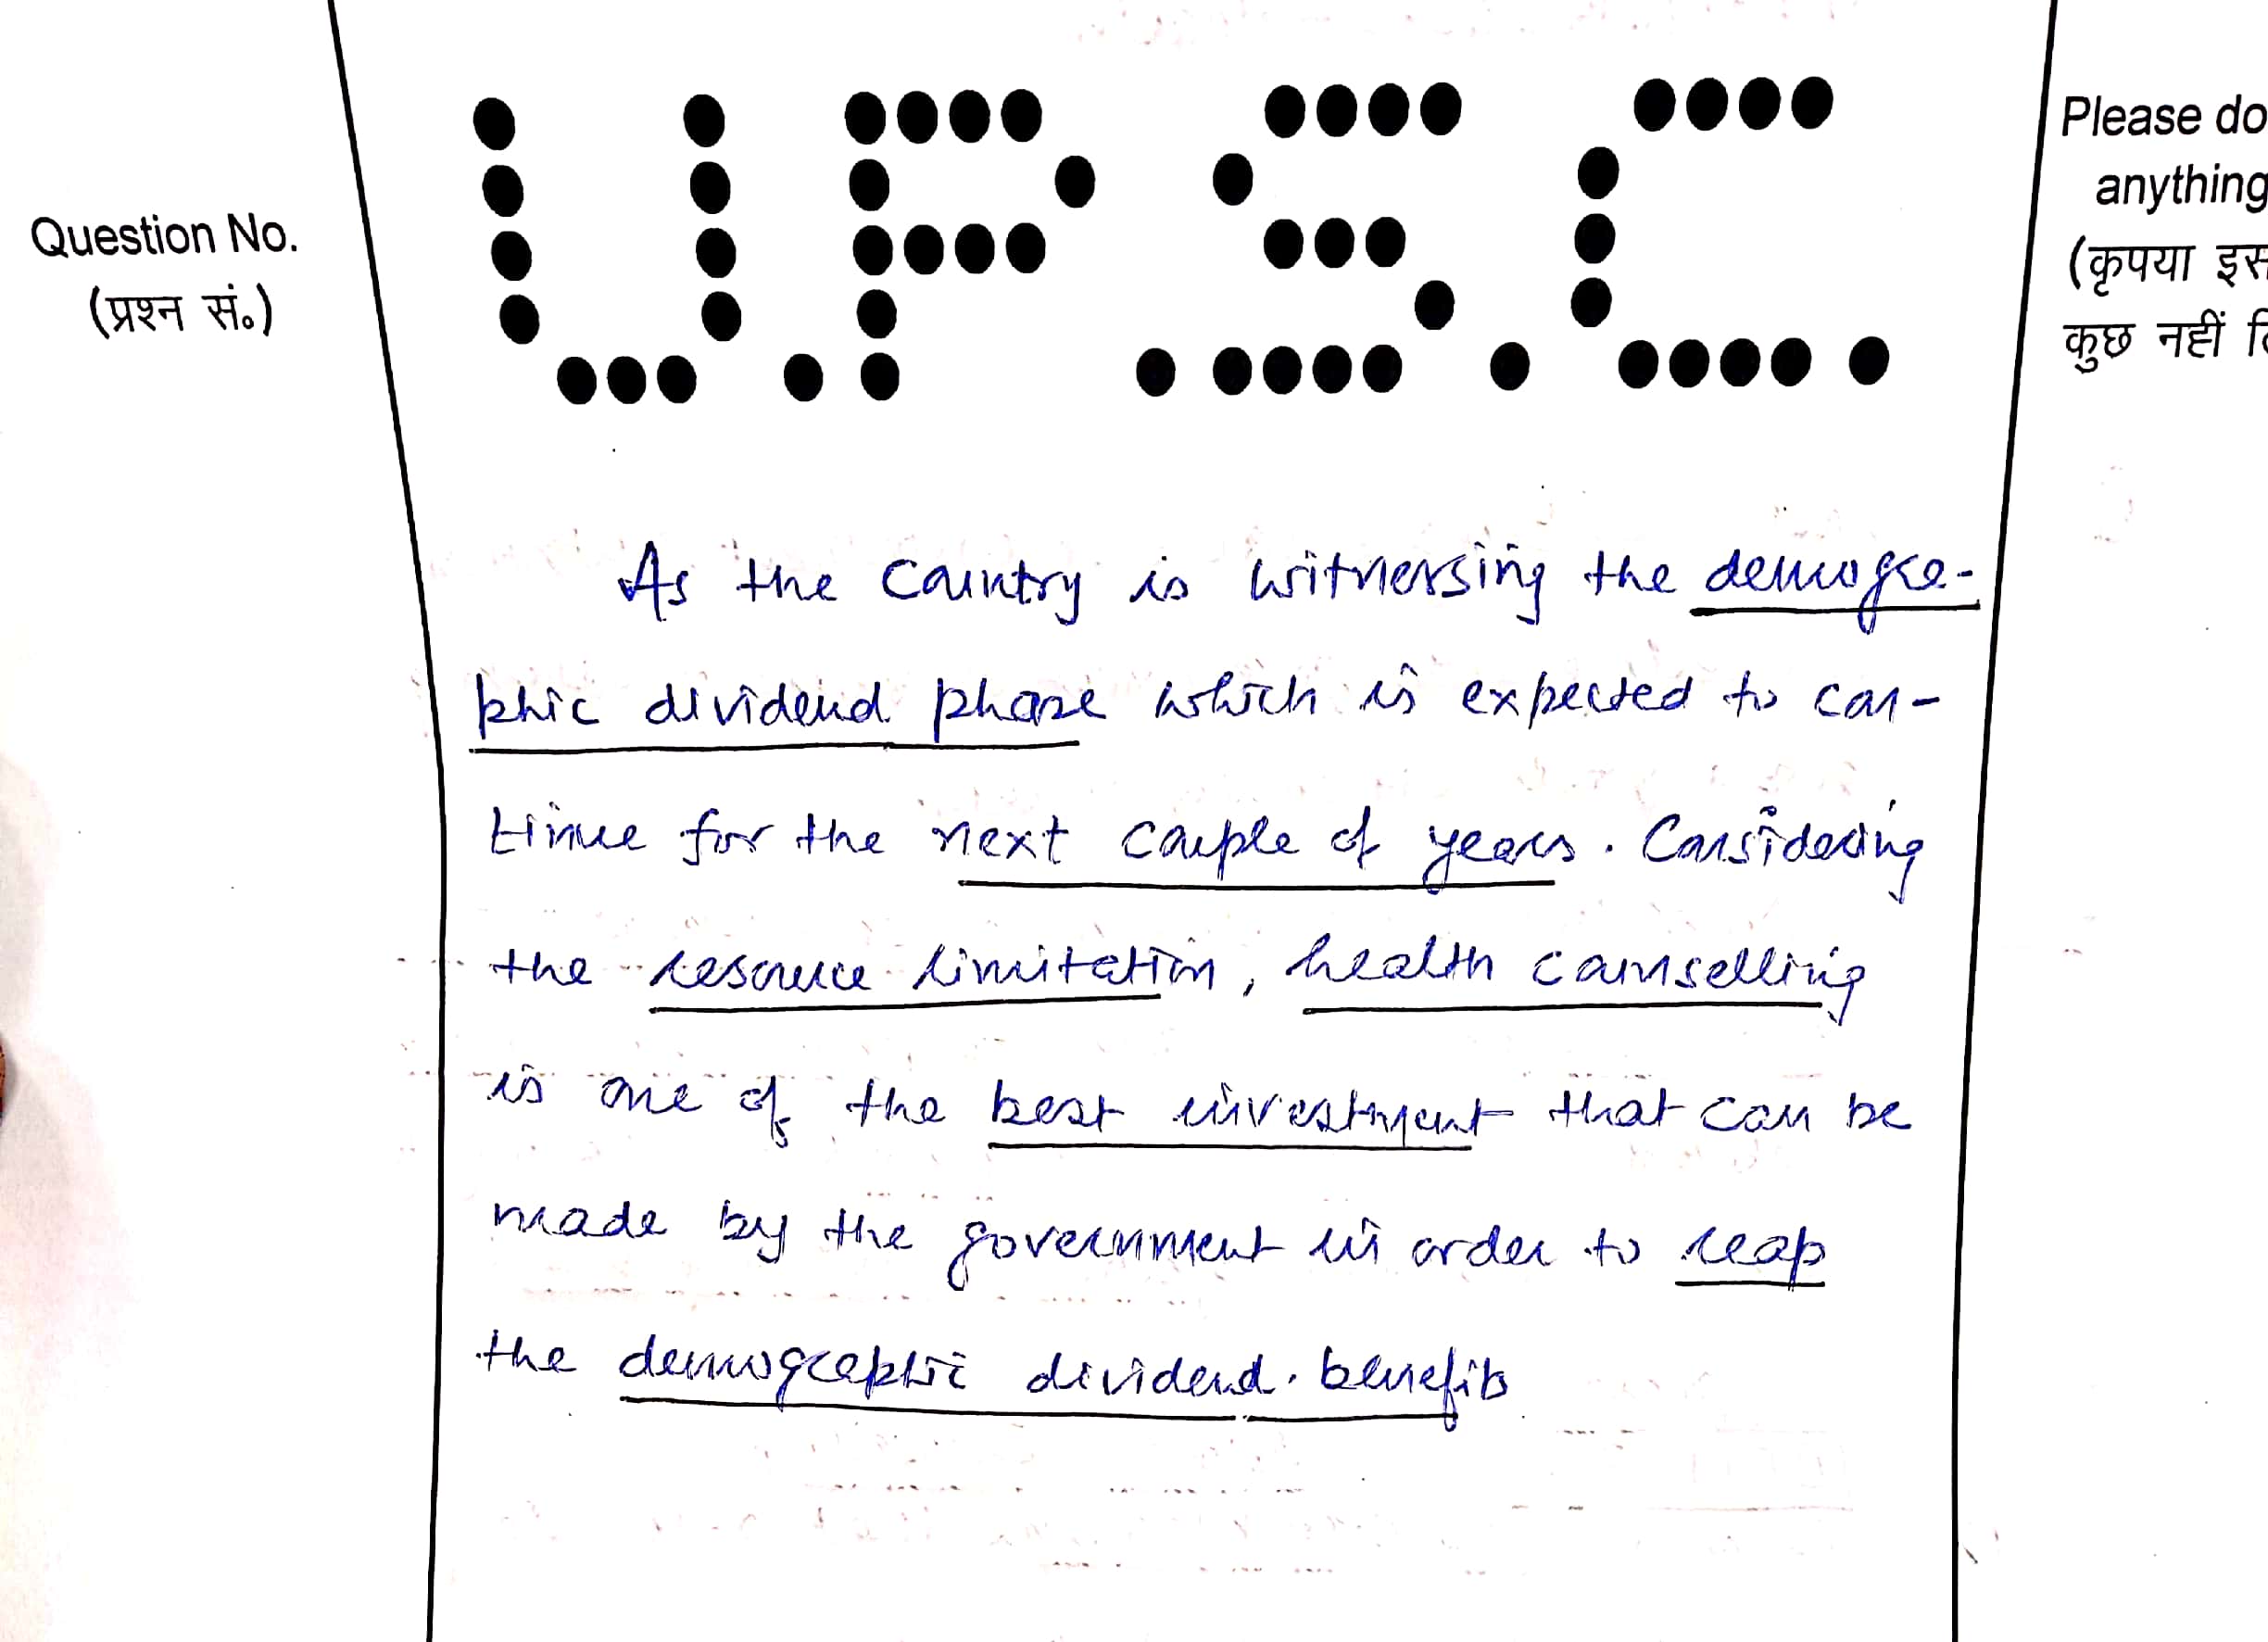 U.P.S.C.
Question No.
(प्रश्न सं.)
Please do
anything
(कृपया इस
कुछ नहीं
As the country is witnessing the demogra-
phic dividend phase which is expected to con-
tinue for the next couple of years. Considering
the resource limitation, health counselling
is one of the best investment that can be
made by the government in order to reap
the demographic dividend benefits